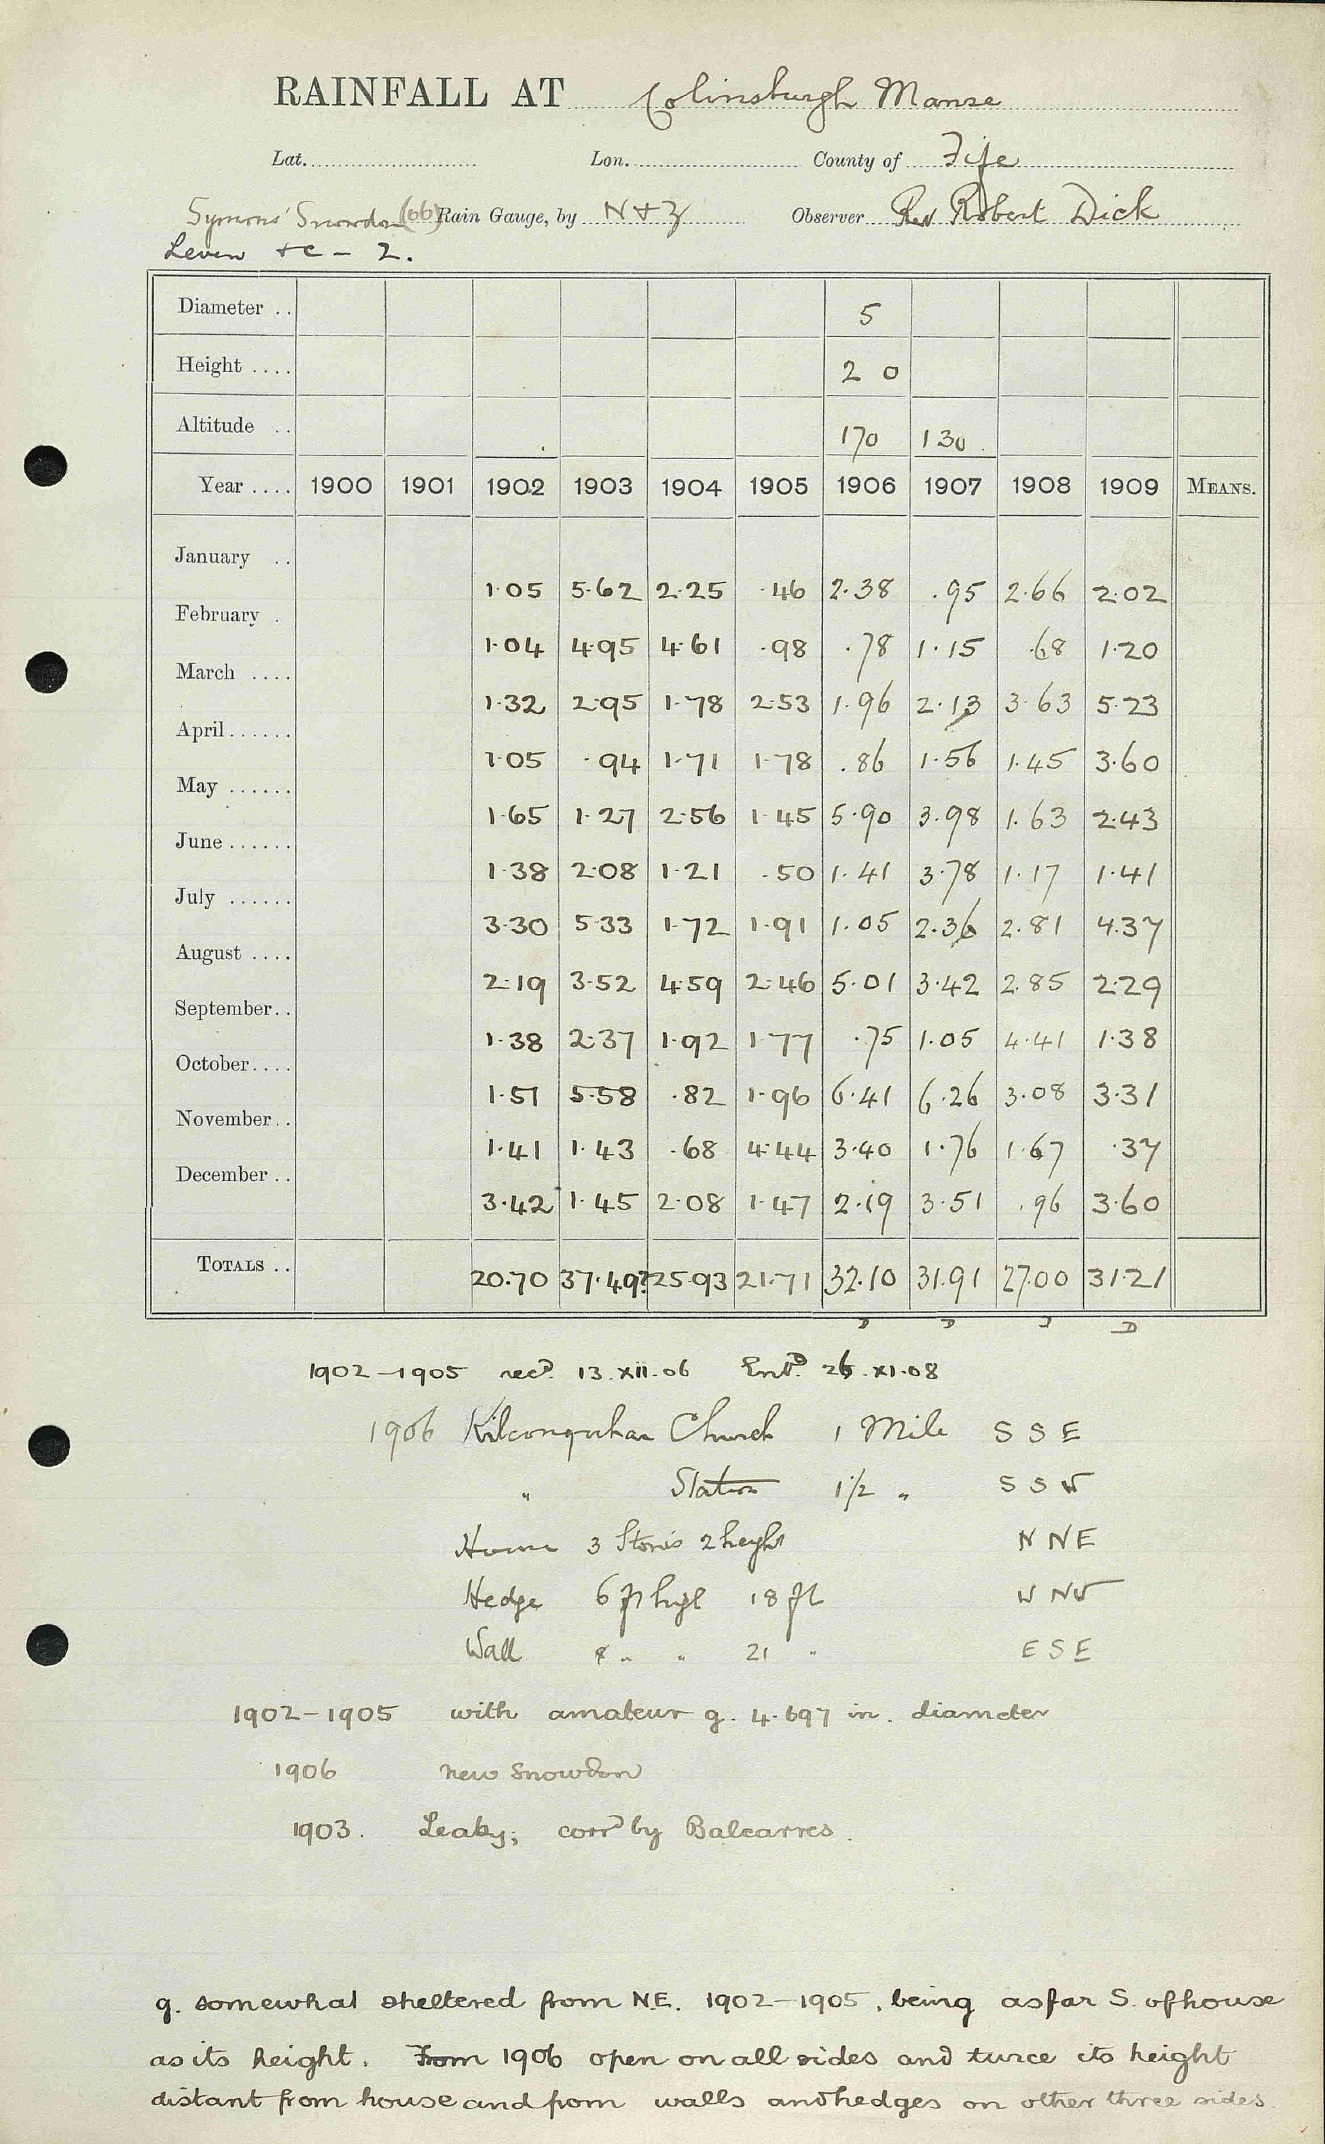 RAINFALL AT Colinsburgh Manse
Lat. Lon. County of Fife
Symons' Snowdon (06) Rain Gauge, by N & Z Observer Rev Robert Dick
Leven &c - 2.
Diameter .. 5
Height .... 2 0
Altitude .. 170 130
Year .... 1900 1901 1902 1903 1904 1905 1906 1907 1908 1909 MEANS.
January .. 1.05 5.62 2.25 .46 2.38 .95 2.66 2.02
February . 1.04 4.95 4.61 .98 .78 1.15 .68 1.20
March .... 1.32 2.95 1.78 2.53 1.96 2.13 3.63 5.23
April ...... 1.05 .94 1.71 1.78 .86 1.56 1.45 3.60
May ...... 1.65 1.27 2.56 1.45 5.90 3.98 1.63 2.43
June ...... 1.38 2.08 1.21 .50 1.41 3.78 1.17 1.41
July ...... 3.30 5.33 1.72 1.91 1.05 2.36 2.81 4.37
August .... 2.19 3.52 4.59 2.46 5.01 3.42 2.85 2.29
September .. 1.38 2.37 1.92 1.77 .75 1.05 4.41 1.38
October .... 1.51 5.58 .82 1.96 6.41 6.26 3.08 3.31
November .. 1.41 1.43 .68 4.44 3.40 1.76 1.67 .37
December .. 3.42 1.45 2.08 1.47 2.19 3.51 .96 3.60
TOTALS .. 20.70 37.49? 25.93 21.71 32.10 31.91 27.00 31.21
D D J D
1902-1905 recd. 13.XII.06 Entd. 26.XI.08
1906 Kilconquhar Church 1 Mile S S E
" Station 1 1/2 " S S W
House 3 Stories 2 height N N E
Hedge 6 ft high 18 ft W N W
Wall " " 21 " E S E
1902-1905 with amateur g. 4.697 in. diameter
1906 new Snowdon
1903. Leaky; corrd by Balcarres.
g. somewhat sheltered from N.E. 1902-1905, being as far S. of house
as its height. From 1906 open on all sides and twice its height
distant from house and from walls and hedges on other three sides.